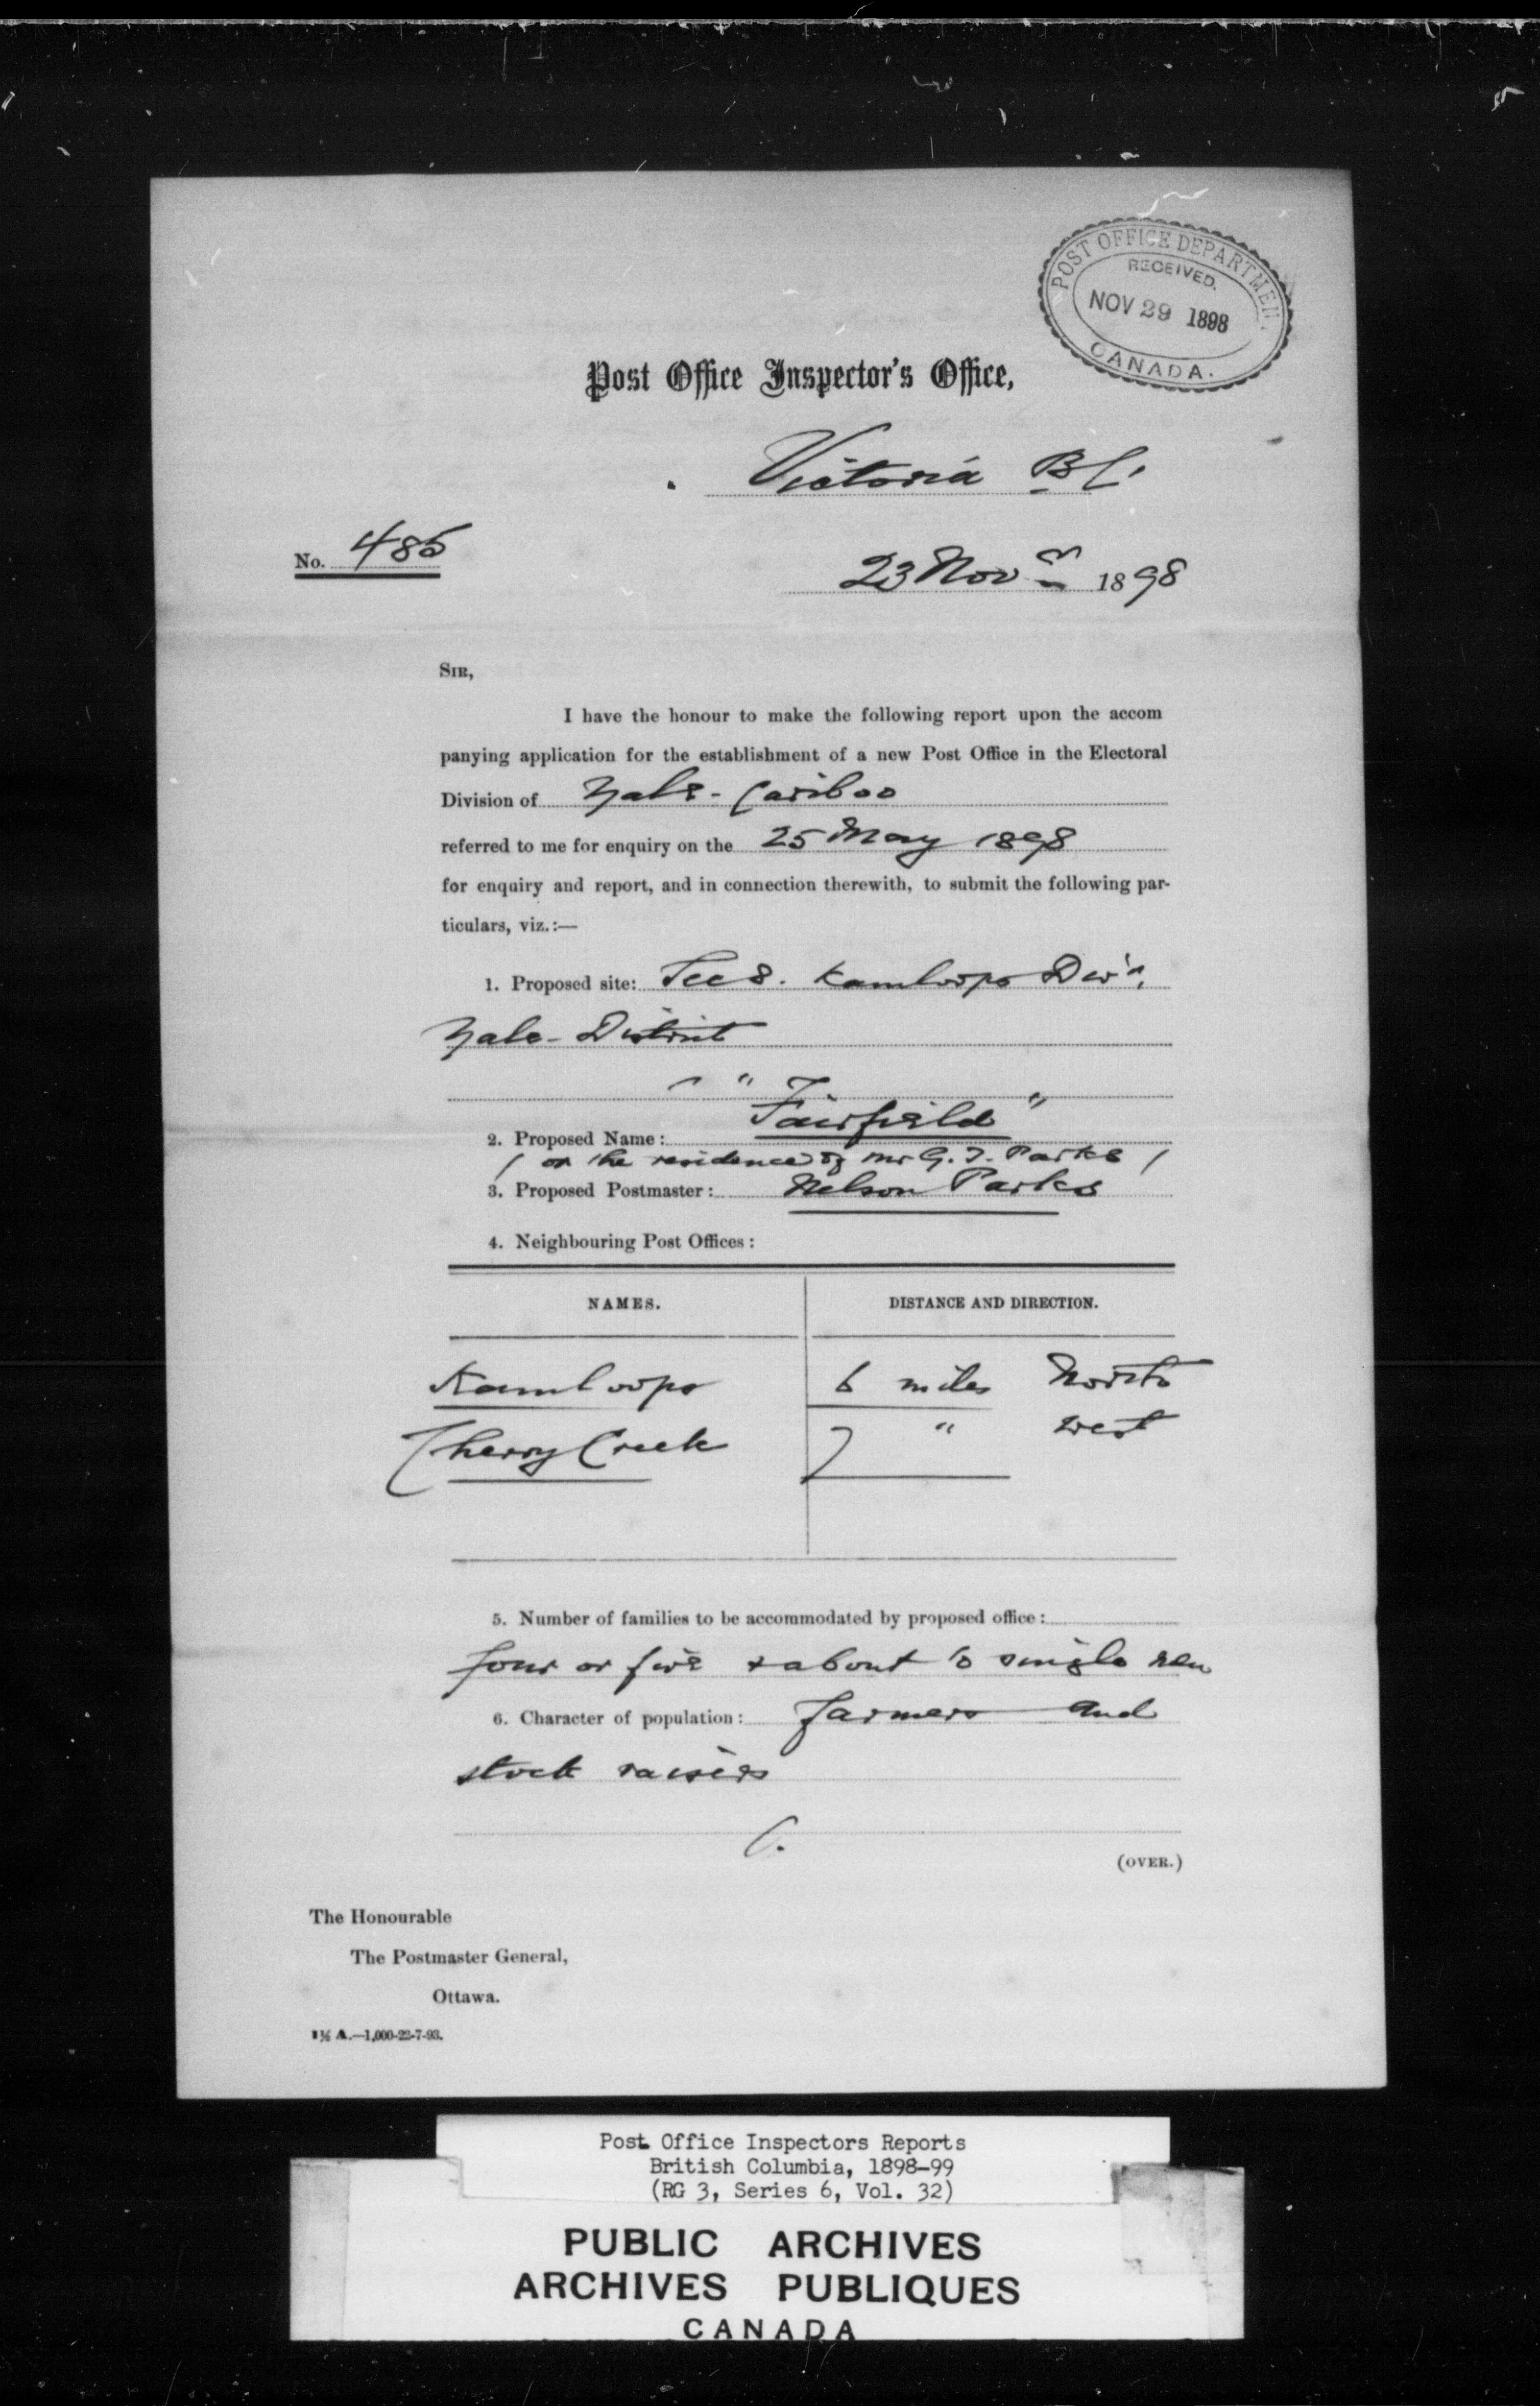 POST OFFICE DEPARTMEN
RECEIVED.
NOV 29 1898
CANADA.
Post Office Inspector's Office,
Victoria B.C.
No. 485
23 Nov r 1898
SIR,
I have the honour to make the following report upon the accom
panying application for the establishment of a new Post Office in the Electoral
Division of Yale-Cariboo
referred to me for enquiry on the 25 May 1898
for enquiry and report, and in connection therewith, to submit the following par-
ticulars, viz.:—
1. Proposed site: Sec 8. Kamloops Div'n,
Yale-District
2. Proposed Name: "Fairfield"
( or the residence of Mr G. J. Parks )
3. Proposed Postmaster: Nelson Parks
4. Neighbouring Post Offices:
NAMES. DISTANCE AND DIRECTION.
Kamloops 6 miles North
Cherry Creek 7 " West
5. Number of families to be accommodated by proposed office:
four or five & about 10 single men
6. Character of population: farmers and
stock raisers
(OVER.)
The Honourable
The Postmaster General,
Ottawa.
1½ A.—1,000-22-7-93.
Post Office Inspectors Reports
British Columbia, 1898-99
(RG 3, Series 6, Vol. 32)
PUBLIC ARCHIVES
ARCHIVES PUBLIQUES
CANADA